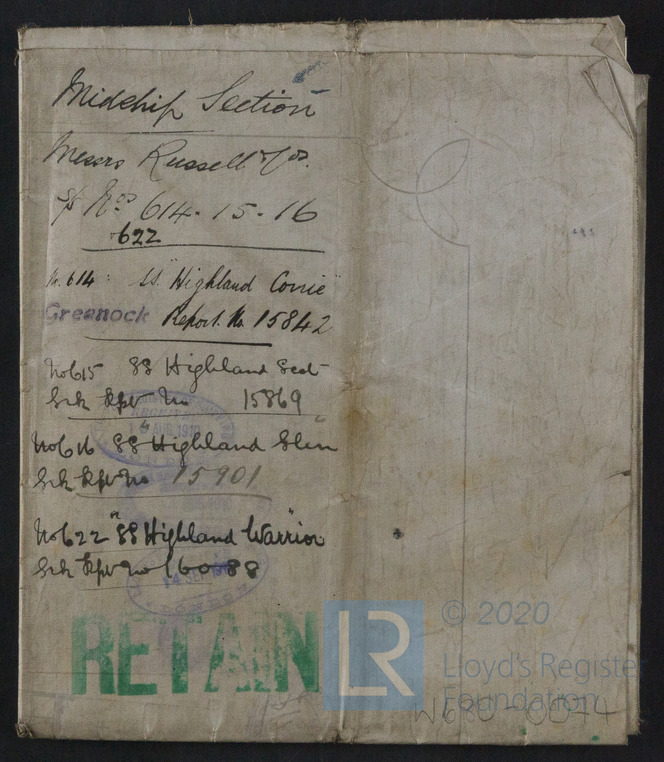 Midship Section
Messrs Russell & Co.
S/S Nos 614 - 15 - 16
+622
No. 614: SS. "Highland Corrie"
Greenock Report. No 15842
No 615 SS Highland
Grk Rpt No 15869
No 616 SS Highland Glen
Grk Rpt No 15901
No 622 "SS Highland Warrior
Grk Rpt No 16088
RETAIN
LR
© 2020
Lloyd's Register
Foundation